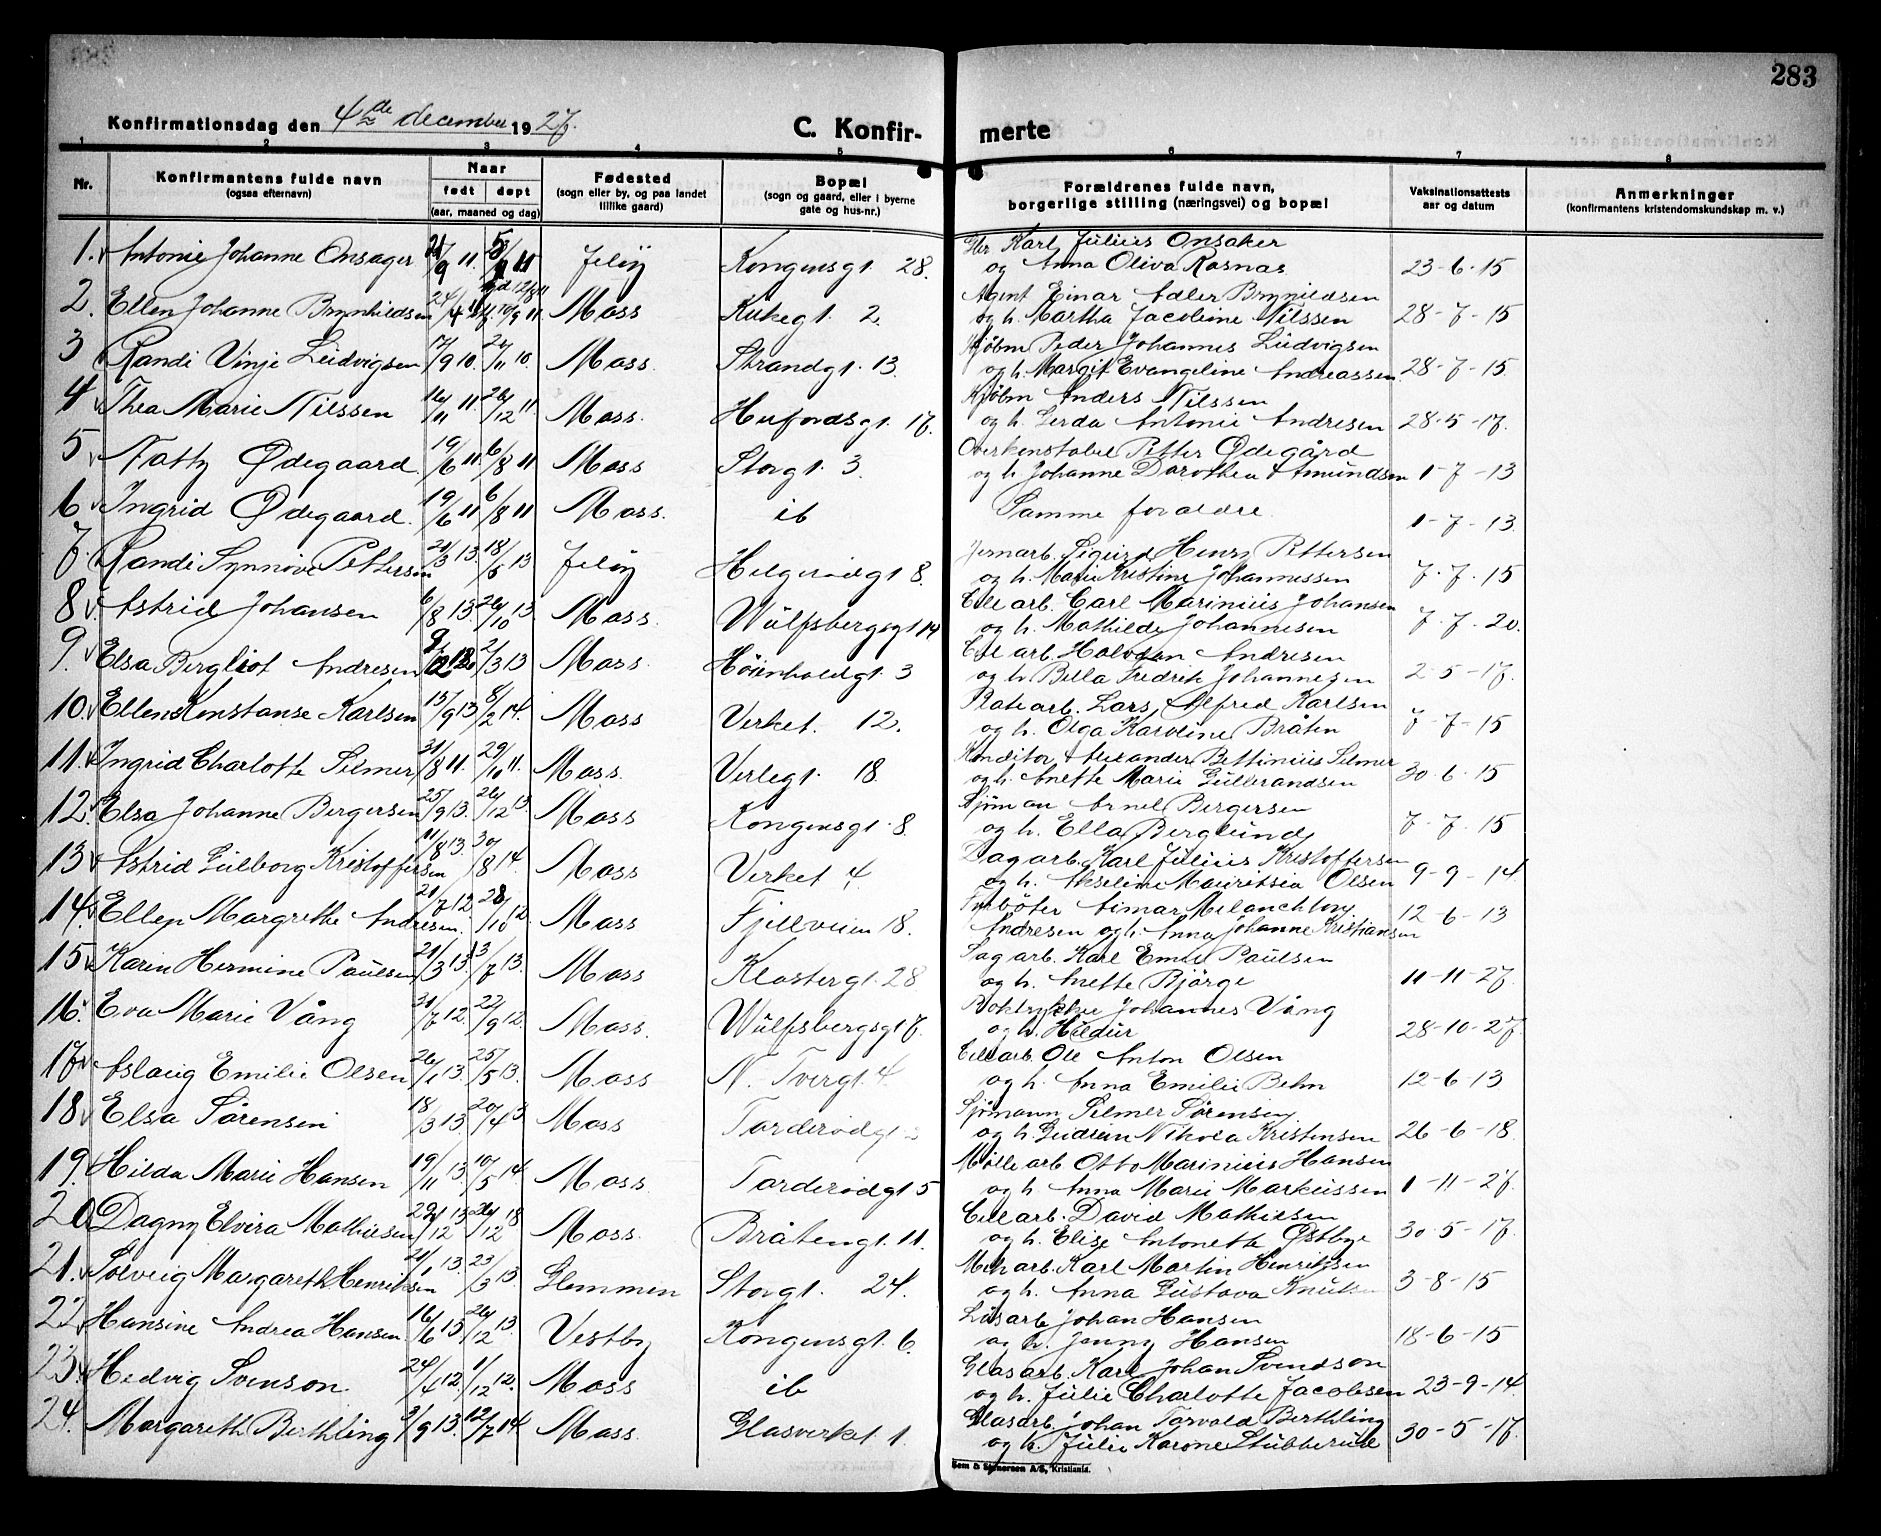 283
Konfirmationsdag den 4de december 1927.
C. Konfir-
merte
1 2 3 4 5 6 7 8
Nr.
Konfirmantens fulde navn
(ogsaa efternavn)
Naar
født døpt
(aar, maaned og dag)
Fødested
(sogn eller by, og paa landet
tillike gaard)
Bopæl
(sogn og gaard, eller i byerne
gate og hus-nr.)
Forældrenes fulde navn,
borgerlige stilling (næringsvei) og bopæl
Vaksinationsattests
aar og datum
Anmerkninger
(konfirmantens kristendomskundskap m. v.)
1. Antonie Johanne Onsager Jeløy Kongensgt. 28. Karl Julius Onsaker
og Anna Oliva Rasnas 23-6-15
2. Ellen Johanne Brynhildsen Moss Kirkegt. 2. Agent Einar Adler Brynildsen
og h. Martha Jacobine Nilssen 28-7-15
3 Randi Vinje Ludvigsen 17/9 10. Moss. Strandgt. 13. Kjøbm Peder Johannes Ludvigsen
og h. Margit Evangeline Andreassen 28-7-15
4 Thea Marie Nilssen 16/11 11. 26/12 11. Moss. Kjøbm Anders Nilssen
og h. Gerda Antonie Andresen 28-5-17.
5 Natty Ødegaard 19/6 11. 6/8 11 Moss Storgt. 3. Overkonstabel Petter Ødegård
og h. Johanne Dorothea Amundsen 1-7-13
6 Ingrid Ødegaard. 19/6 11 6/8 11 Moss. ib Samme foraldre 1-7-13.
7. Randi Synnøve Pettersen 21/3 13. 18/5 13 Jeløy Helgerødgt 8. Jernarb. Sigurd Henry Pettersen
og h. Marie Kristine Johannessen 7.7.15
8 Astrid Johansen 6/8 13. 26/10 13. Moss. Wulfsbergsgt 14 Cell arb. Carl Marinius Johansen
og h. Mathilde Johannesen 7.7.20.
9. Elsa Bergliot Andresen 2/3 13 Moss. Høienholdgt. 3 Cell arb. Halvdan Andresen
og h. Bella Fredrik Johannesen 2-5-17.
10. Ellen Konstanse Karlsen 15/9 13. 8/2 14. Moss Verket. 12. arb. Lars Alfred Karlsen
og h. Olga Karoline Bråten 7-7-15
11. Ingrid Charlotte Selmer 31/8 11. 29/10 11. Moss. Verlegt. 18. Konditor Alexander Bettinius Selmer
og h. Anette Marie Gullerandsen 30.6.15
12. Elsa Johanne Bergersen 25/9 13. 26/12 13. Moss Kongensgt. 8. Sjøman Arnel Bergersen
og h. Ella Berglund 7-7-15
13 Astrid Gulborg Kristoffersen 11/8 13. 30/8 14. Moss Verket 4 Dagarb. Karl Julius Kristoffersen
og h. Akseline Mauritsia Olsen 9-9-14.
14. Ellen Margrethe Andresen. 21/7 12 28/10 12. Moss Fjellveien 18. Fyrbøter Aimar Melanchton
Andresen og h. Anna Johanne Kristiansen 12-6-13
15 Karen Hermine Paulsen 21/3 13. 13/7 13. Moss Klostergt. 28 Sag arb. Karl Emil Paulsen
og h. Anette Bjørge 11-11-27.
16. Eva Marie Vång 21/7 12. 22/9 12. Moss. Wulfsbergsgt 7. Boktrykker Johannes Vång
og h. Hildur 28-10-27
17 Aslaug Emilie Olsen 26/1 13. 25/5 13. Moss N. Tvergt. 4. Cell arb. Ole Anton Olsen
og h. Anna Emilie Behn 12-6-13
18 Elsa Sørensen 18/3 13. 20/4 13 Moss Tarderødgt Sjømann Selmer Sørensen
og h. Gudrun Nikola Kristensen 26-6-18.
19. Hilda Marie Hansen 19/11 13. 10/5 14. Moss. Tarderødgt 5 Mølle arb Otto Marinius Hansen
og h. Anna Marie Markussen 1-11-27.
20 Dagny Elvira Mathiesen Moss. Bråtengt. 11. Cell arb. David Mathiesen
og h. Elise Antonette Østbye 30.5-17.
21. Solveig Margareth Henriksen 21/1 13. 23/3 13. Glemmen Storgt. 24. Mek arb. Karl Martin Henriksen
og h. Anna Gustava Knutsen 3-8-15
22. Hansine Andrea Hansen 16/6 13 26/12 13. Vestby Kongensgt. 6. Løsarb Johan Hansen
og h. Jenny Hansen 18-6-15
23. Hedvig Svenson 24/4 12. 1/12 12. Moss ib Glasarb. Karl Johan Svendson
og h. Julie Charlotte Jacobsen 23-9-14.
24. Margareth Berthling 3/9 13. 12/7 14. Moss. Glasverket 1. Glasarb. Johan Torvald Berthling
og h. Julie Karone Stubberud 30-5-17.
Sem & Stenersen A/S, Kristiania.